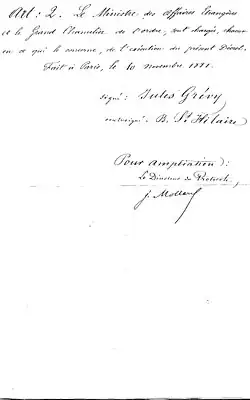 Art : 2. Le Ministre des Affaires Etrangères
et le Grand Chancelier de l'ordre, sont chargés, chacun
en ce qui le concerne, de l'exécution du présent Décret.
Fait à Paris, le 10 novembre 1881.
signé : Jules Grévy
contresigné : B. St Hilaire
Pour ampliation :
Le Directeur du Protocole,
J. Mollard